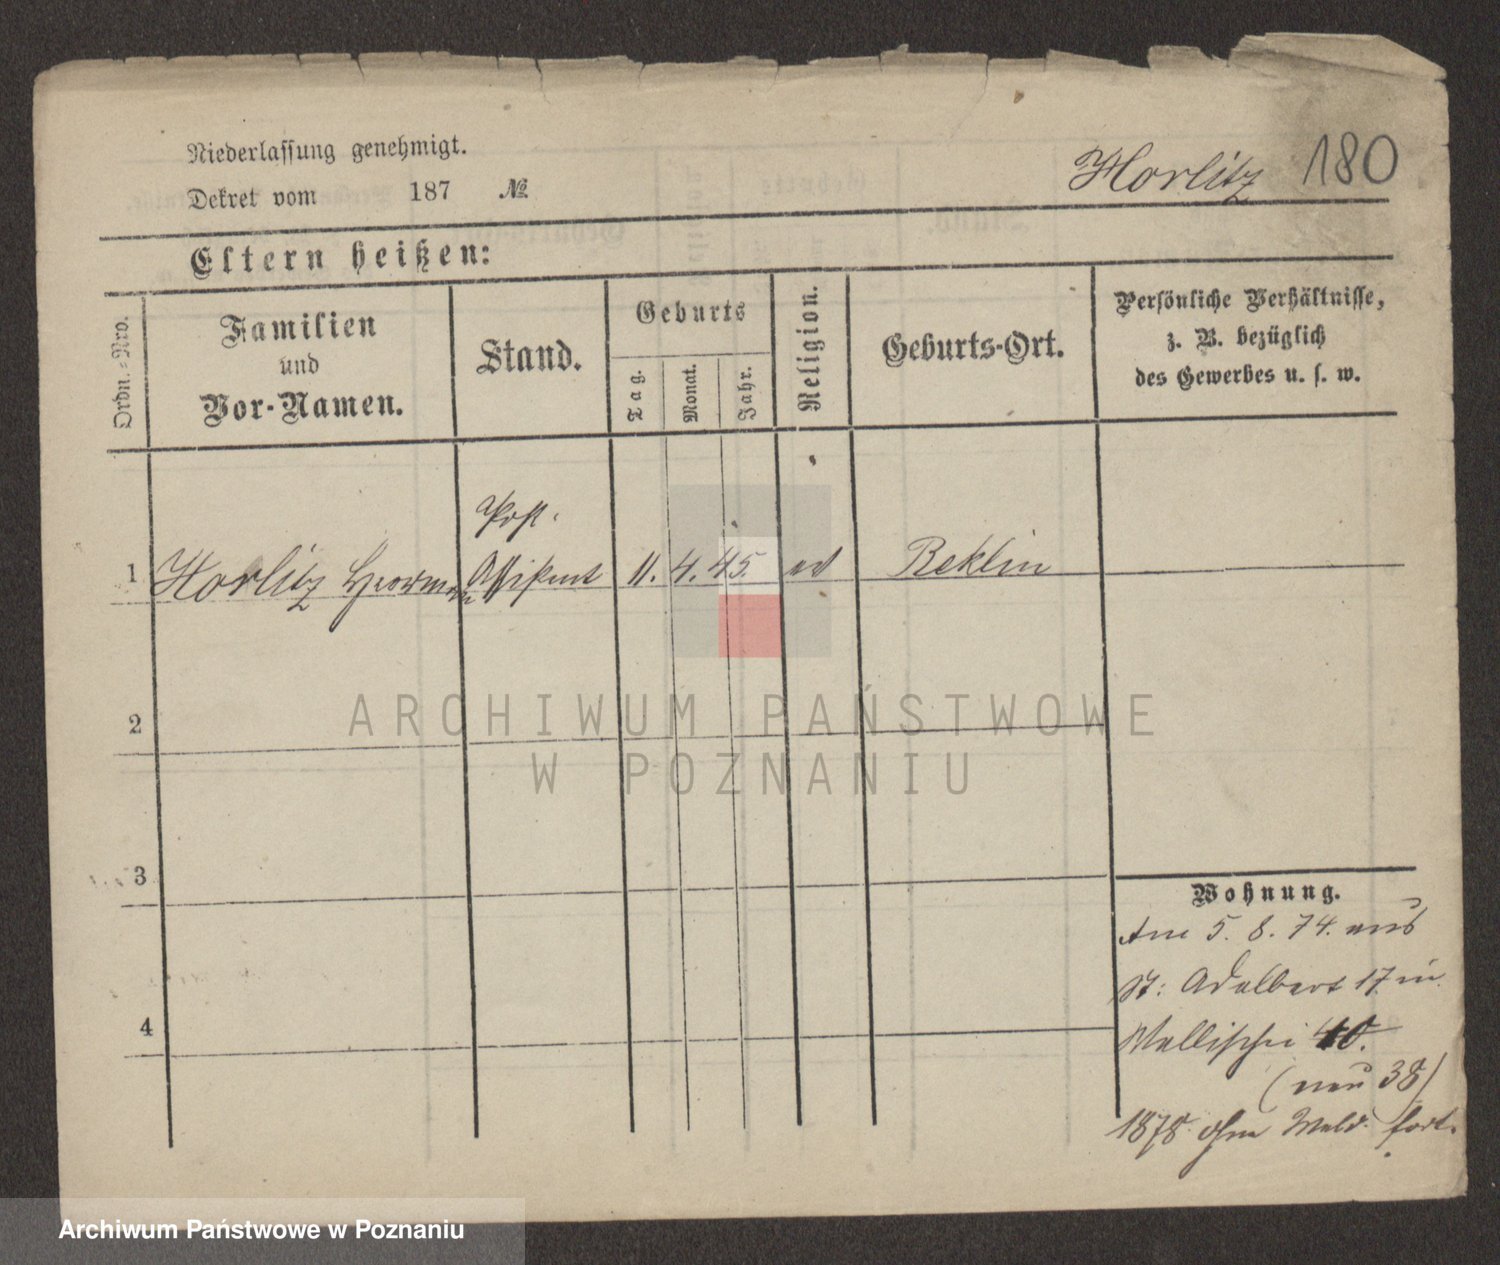 Niederlassung genehmigt.
Dekret vom 187 №
Horlitz 180
Eltern heißen:
Ordn.-Nro.
Familien
und
Vor-Namen.
Stand.
Geburts
Tag.
Monat.
Jahr.
Religion.
Geburts-Ort.
Persönliche Verhältnisse,
z. B. bezüglich
des Gewerbes u. s. w.
Post-
1 Horlitz Herrmann Assistent 11. 4. 45. ev Reklin
2
3
4
Wohnung.
Am 5. 8. 74. aus
St: Adalbert 17 in
Wallischei 40.
(neu 38)
1878 ohne Meld. fort.
ARCHIWUM PAŃSTWOWE
W POZNANIU
Archiwum Państwowe w Poznaniu